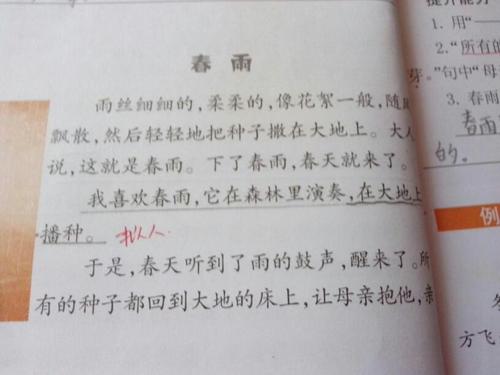 春雨
雨丝细细的，柔柔的，像花絮一般，随
飘散，然后轻轻地把种子撒在大地上。大人
说，这就是春雨。下了春雨，春天就来了。
我喜欢春雨，它在森林里演奏，在大地上
播种。 拟人
于是，春天听到了雨的鼓声，醒来了。所
有的种子都回到大地的床上，让母亲抱他，亲
1. 用“一
2.“所有的
芽。”句中“母
3. 春雨
春雨
的。
例
方飞